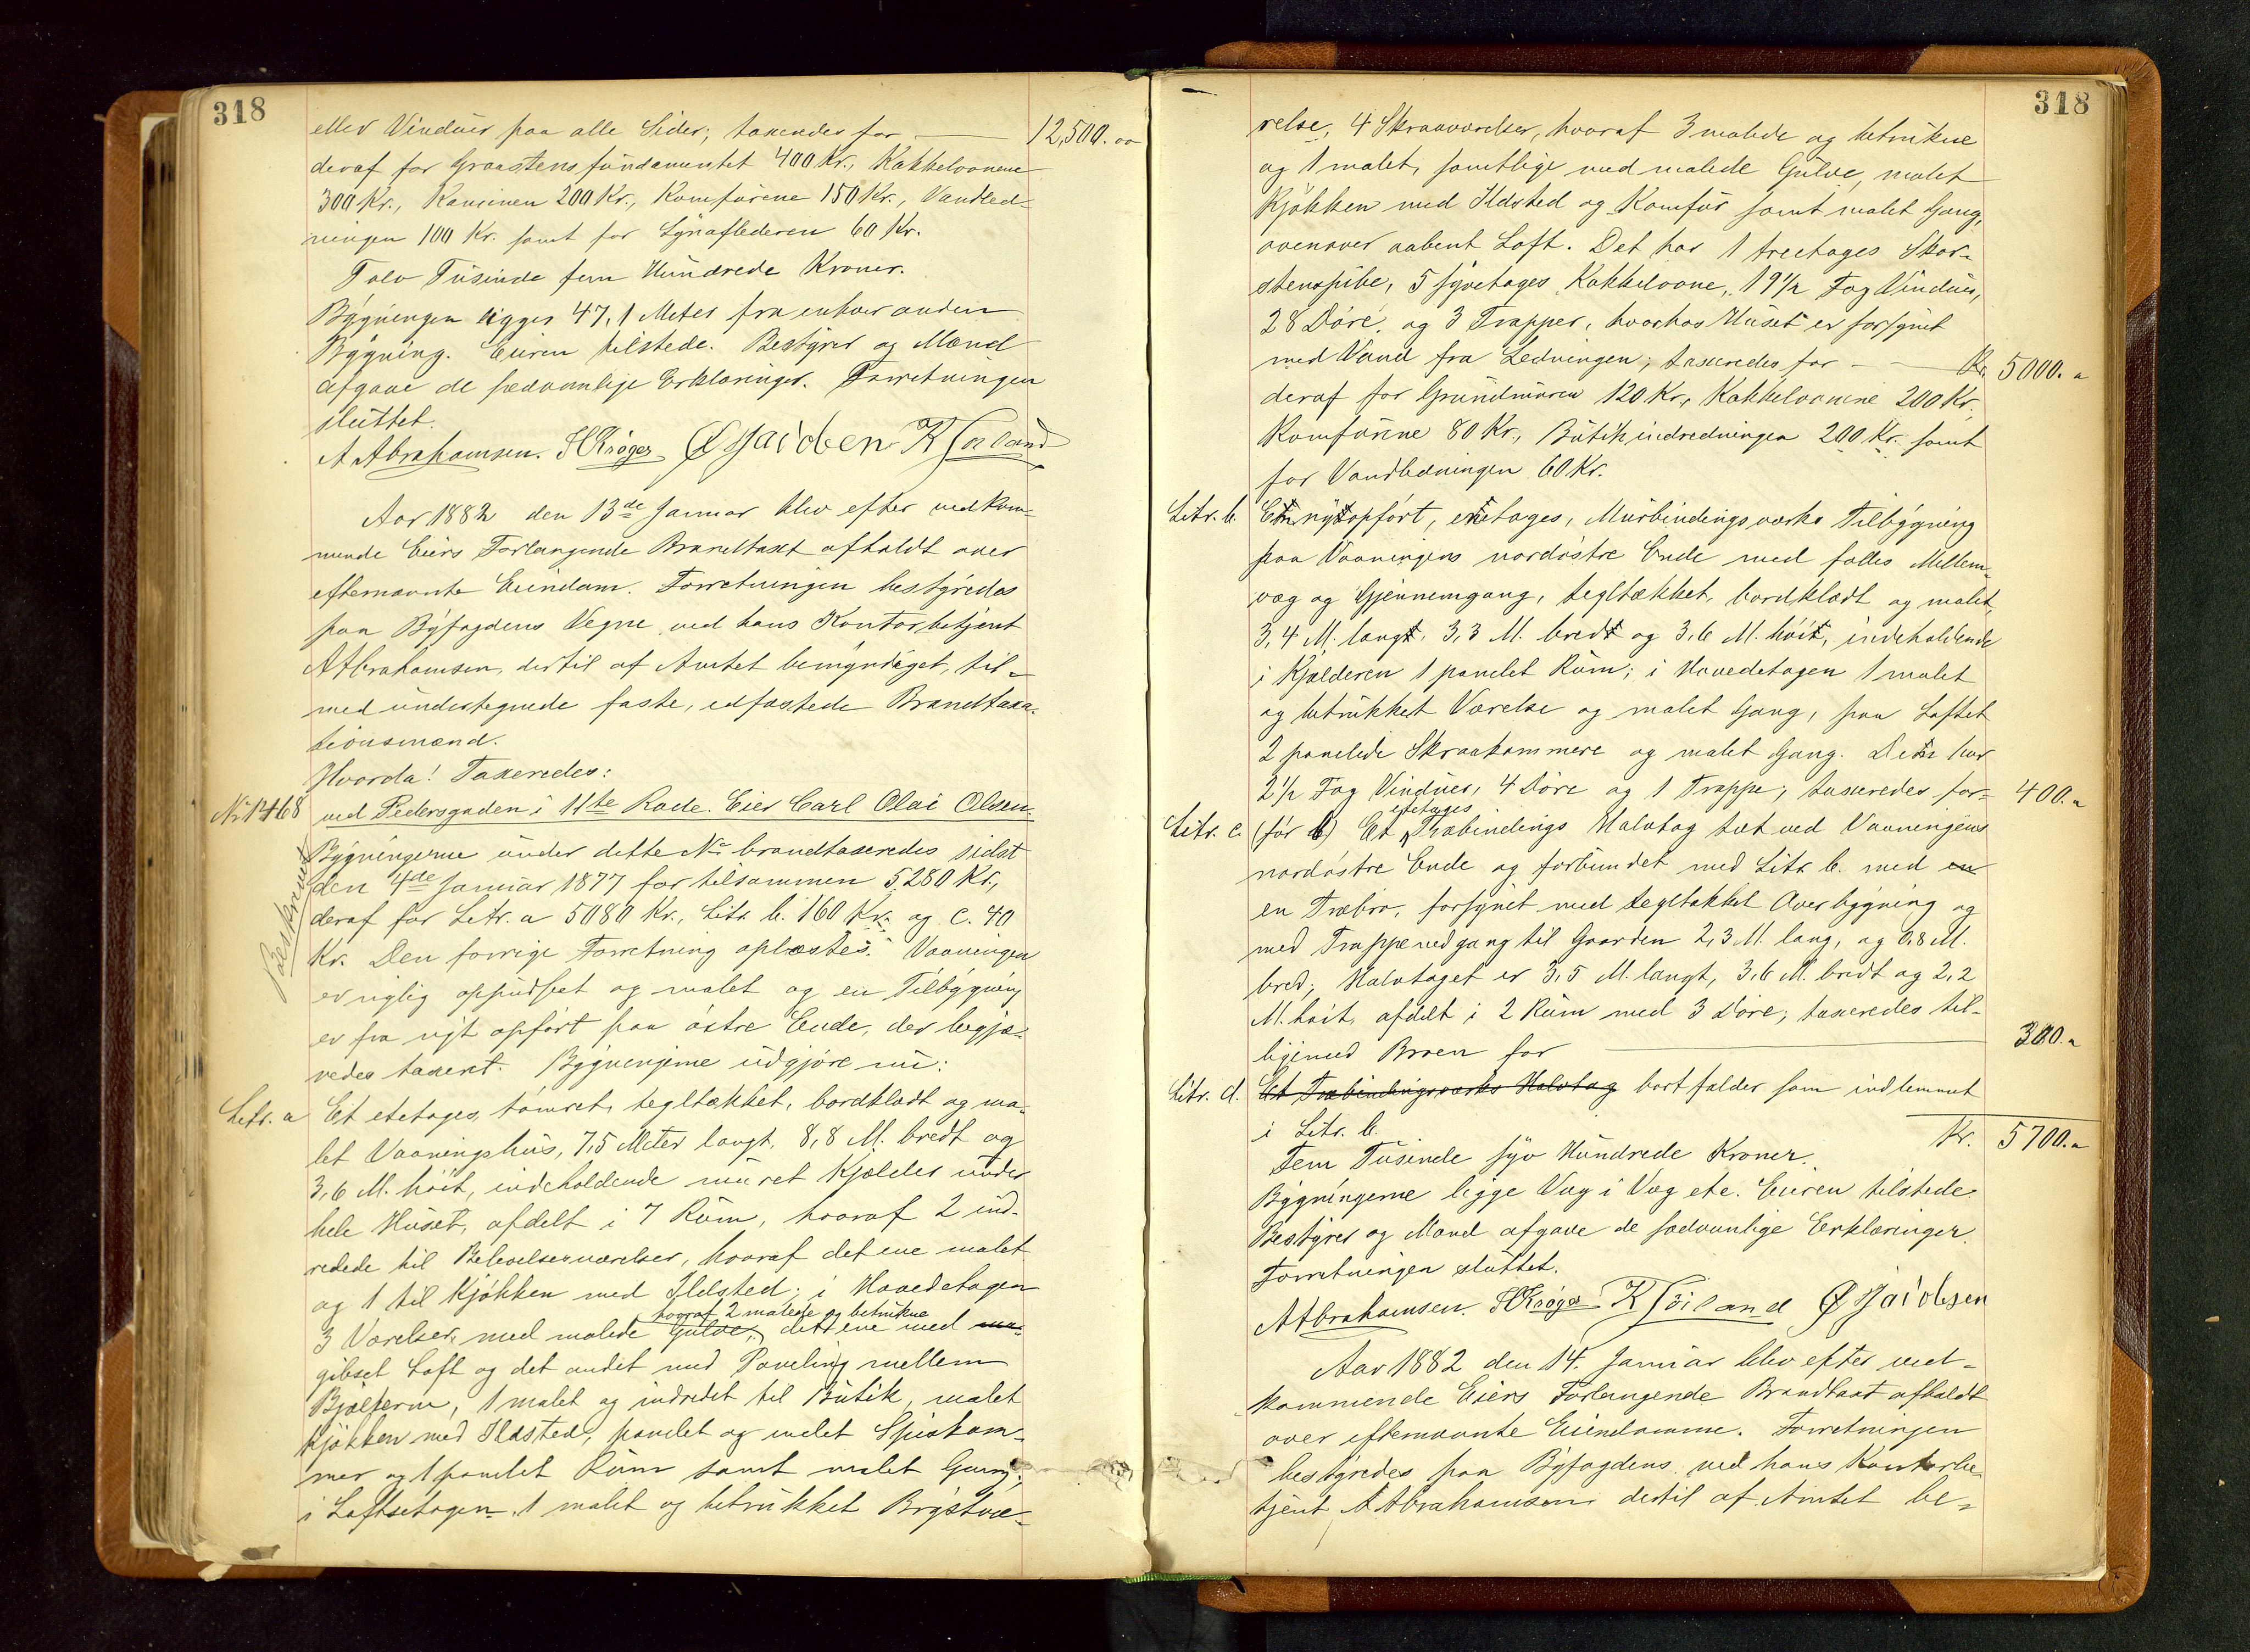 318
eller Vinduer paa alle Sider; taxeredes for — 12,500. oo
deraf for Graastensfundamentet 400 Kr., Kakkelovnene
300 Kr., Kaminen 200 Kr., Komfurene 150 Kr., Vandled-
ningen 100 Kr. samt for Lynaflederen 60 Kr.
Tolv Tusinde fem Hundrede Kroner.
Bygningen ligger 47,1 Meter fra enhver anden
Bygning. Eieren tilstede. Bestyrer og Mænd
afgave de sædvanlige Erklæringer. Forretningen
sluttet.
A Abrahamsen. H Krøger K
Aar 1882 den 13de Januar blev efter vedkom-
mende Eiers Forlangende Brandtaxt afholdt over
efternævnte Eiendom. Forretningen bestyredes
paa Byfogdens Vegne ved hans Kontorbetjent
A Abrahamsen, dertil af Amtet bemyndiget, til-
med undertegnede faste, edfæstede Brandtaxa-
tionsmænd.
Hvorda! Taxeredes:
No 1468 ved Pedersgaden i 11te Rode. Eier Carl Olai Olsen.
Beskrevet
Bygningerne under dette No brandtaxeredes sidst
den 4de Januar 1877 for tilsammen 5280 Kr.,
deraf for Litr. a 5080 Kr., Litr b. 160 Kr. og c. 40
Kr. Den forrige Forretning oplæstes. Vaaningen
er nylig oppudset og malet og en Tilbygning
er fra nyt opført paa østre Ende, der begjæ-
redes taxeret. Bygningerne udgjøre nu:
Litr. a Et etetages, tømret, tegltækket, bordklædt og ma-
let Vaaningshus, 7,5 Meter langt, 8,8 M. bredt og
3,6 M. høit, indeholdende muret Kjælder under
hele Huset, afdelt i 7 Rum, hvoraf 2 ind-
redede til Beboelsesværelser, hvoraf det ene malet
og 1 til Kjøkken med Ildsted; i Hovedetagen
hvoraf 2 malede og betrukne
3 Værelser, med malede Gulve, det ene med ma-
gibset Loft og det andet med Paneling mellem
Bjælkerne, 1 malet og indredet til Butik, malet
Kjøkken med Ildsted, panelet og malet Spiskam-
mer og 1 panelet Rum samt malet Gang;
i Loftsetagen 1 malet og betrukket Brystvæ-
318
relse, 4 Skraaværelser, hvoraf 3 malede og betrukne
og 1 malet, samtlige med malede Gulve, malet
Kjøkken med Ildsted og Komfur samt malet Gang,
ovenover aabent Loft. Det har 1 treetages Skor-
stenspibe, 5 syvetages Kakkelovne, 19 1/2 Fag Vinduer,
28 Døre, og 3 Trapper, hvorhos Huset er forsynet
med Vand fra Ledningen; taxeredes for — Kr. 5000. "
deraf for Grundmuren 120 Kr., Kakkelovnene 200 Kr.
Komfurene 80 Kr., Butikindredningen 200 Kr. samt
for Vandledningen 60 Kr.
Litr. b. En nyopført, enetages, Murbindingsværks Tilbygning
paa Vaaningens nordøstre Ende med fælles Mellem-
væg og Gjennemgang, tegltækket, bordklædt og malet,
3,4 M. lang, 3,3 M. bred og 3,6 M. høi, indeholdende
i Kjælderen 1 panelet Rum; i Hovedetagen 1 malet
og betrukket Værelse og malet Gang, paa Loftet
2 panelede Skraakammere og malet Gang. Den har
2 1/2 Fag Vinduer, 4 Døre og 1 Trappe; taxeredes for- 400. "
etetages
Litr. c. (før b) Et Træbindings Halvtag tæt ved Vaaningens
nordøstre Ende og forbundet med Litr b. med en
en Træbro, forsynet med tegltækket Overbygning og
med Trappenedgang til Gaarden 2,3 M. lang, og 0,8 M.
bred; Halvtaget er 3,5 M. langt, 3,6 M. bredt og 2,2
M. høit, afdelt i 2 Rum med 3 Døre; taxeredes til-
ligemed Broen for — 300. "
Litr. d. Et Træbindingsværks Halvtag bortfalder som indlemmet
i Litr. b.
Kr. 5700. "
Fem Tusinde syv Hundrede Kroner.
Bygningerne ligge Væg i Væg etc. Eieren tilstede.
Bestyrer og Mænd afgave de sædvanlige Erklæringer.
Forretningen sluttet.
A Abrahamsen. H Krøger K
Aar 1882 den 14. Januar blev efter ved-
kommende Eiers Forlangende Brandtaxt afholdt
over efternævnte Eiendomme. Forretningen
bestyredes paa Byfogdens ved hans Kontorbe-
tjent A Abrahamsen dertil af Amtet be-